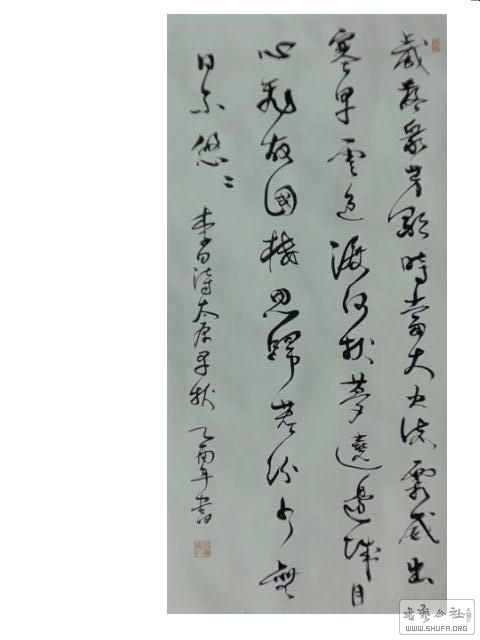 歲落衆芳歇時當大火流霜威出
塞早雲色渡河秋夢遶邊城月
心飛故國樓思歸若汾水無
日不悠々
李白詩太原早秋 乙酉年書
书艺公社
WWW.SHUFA.ORG